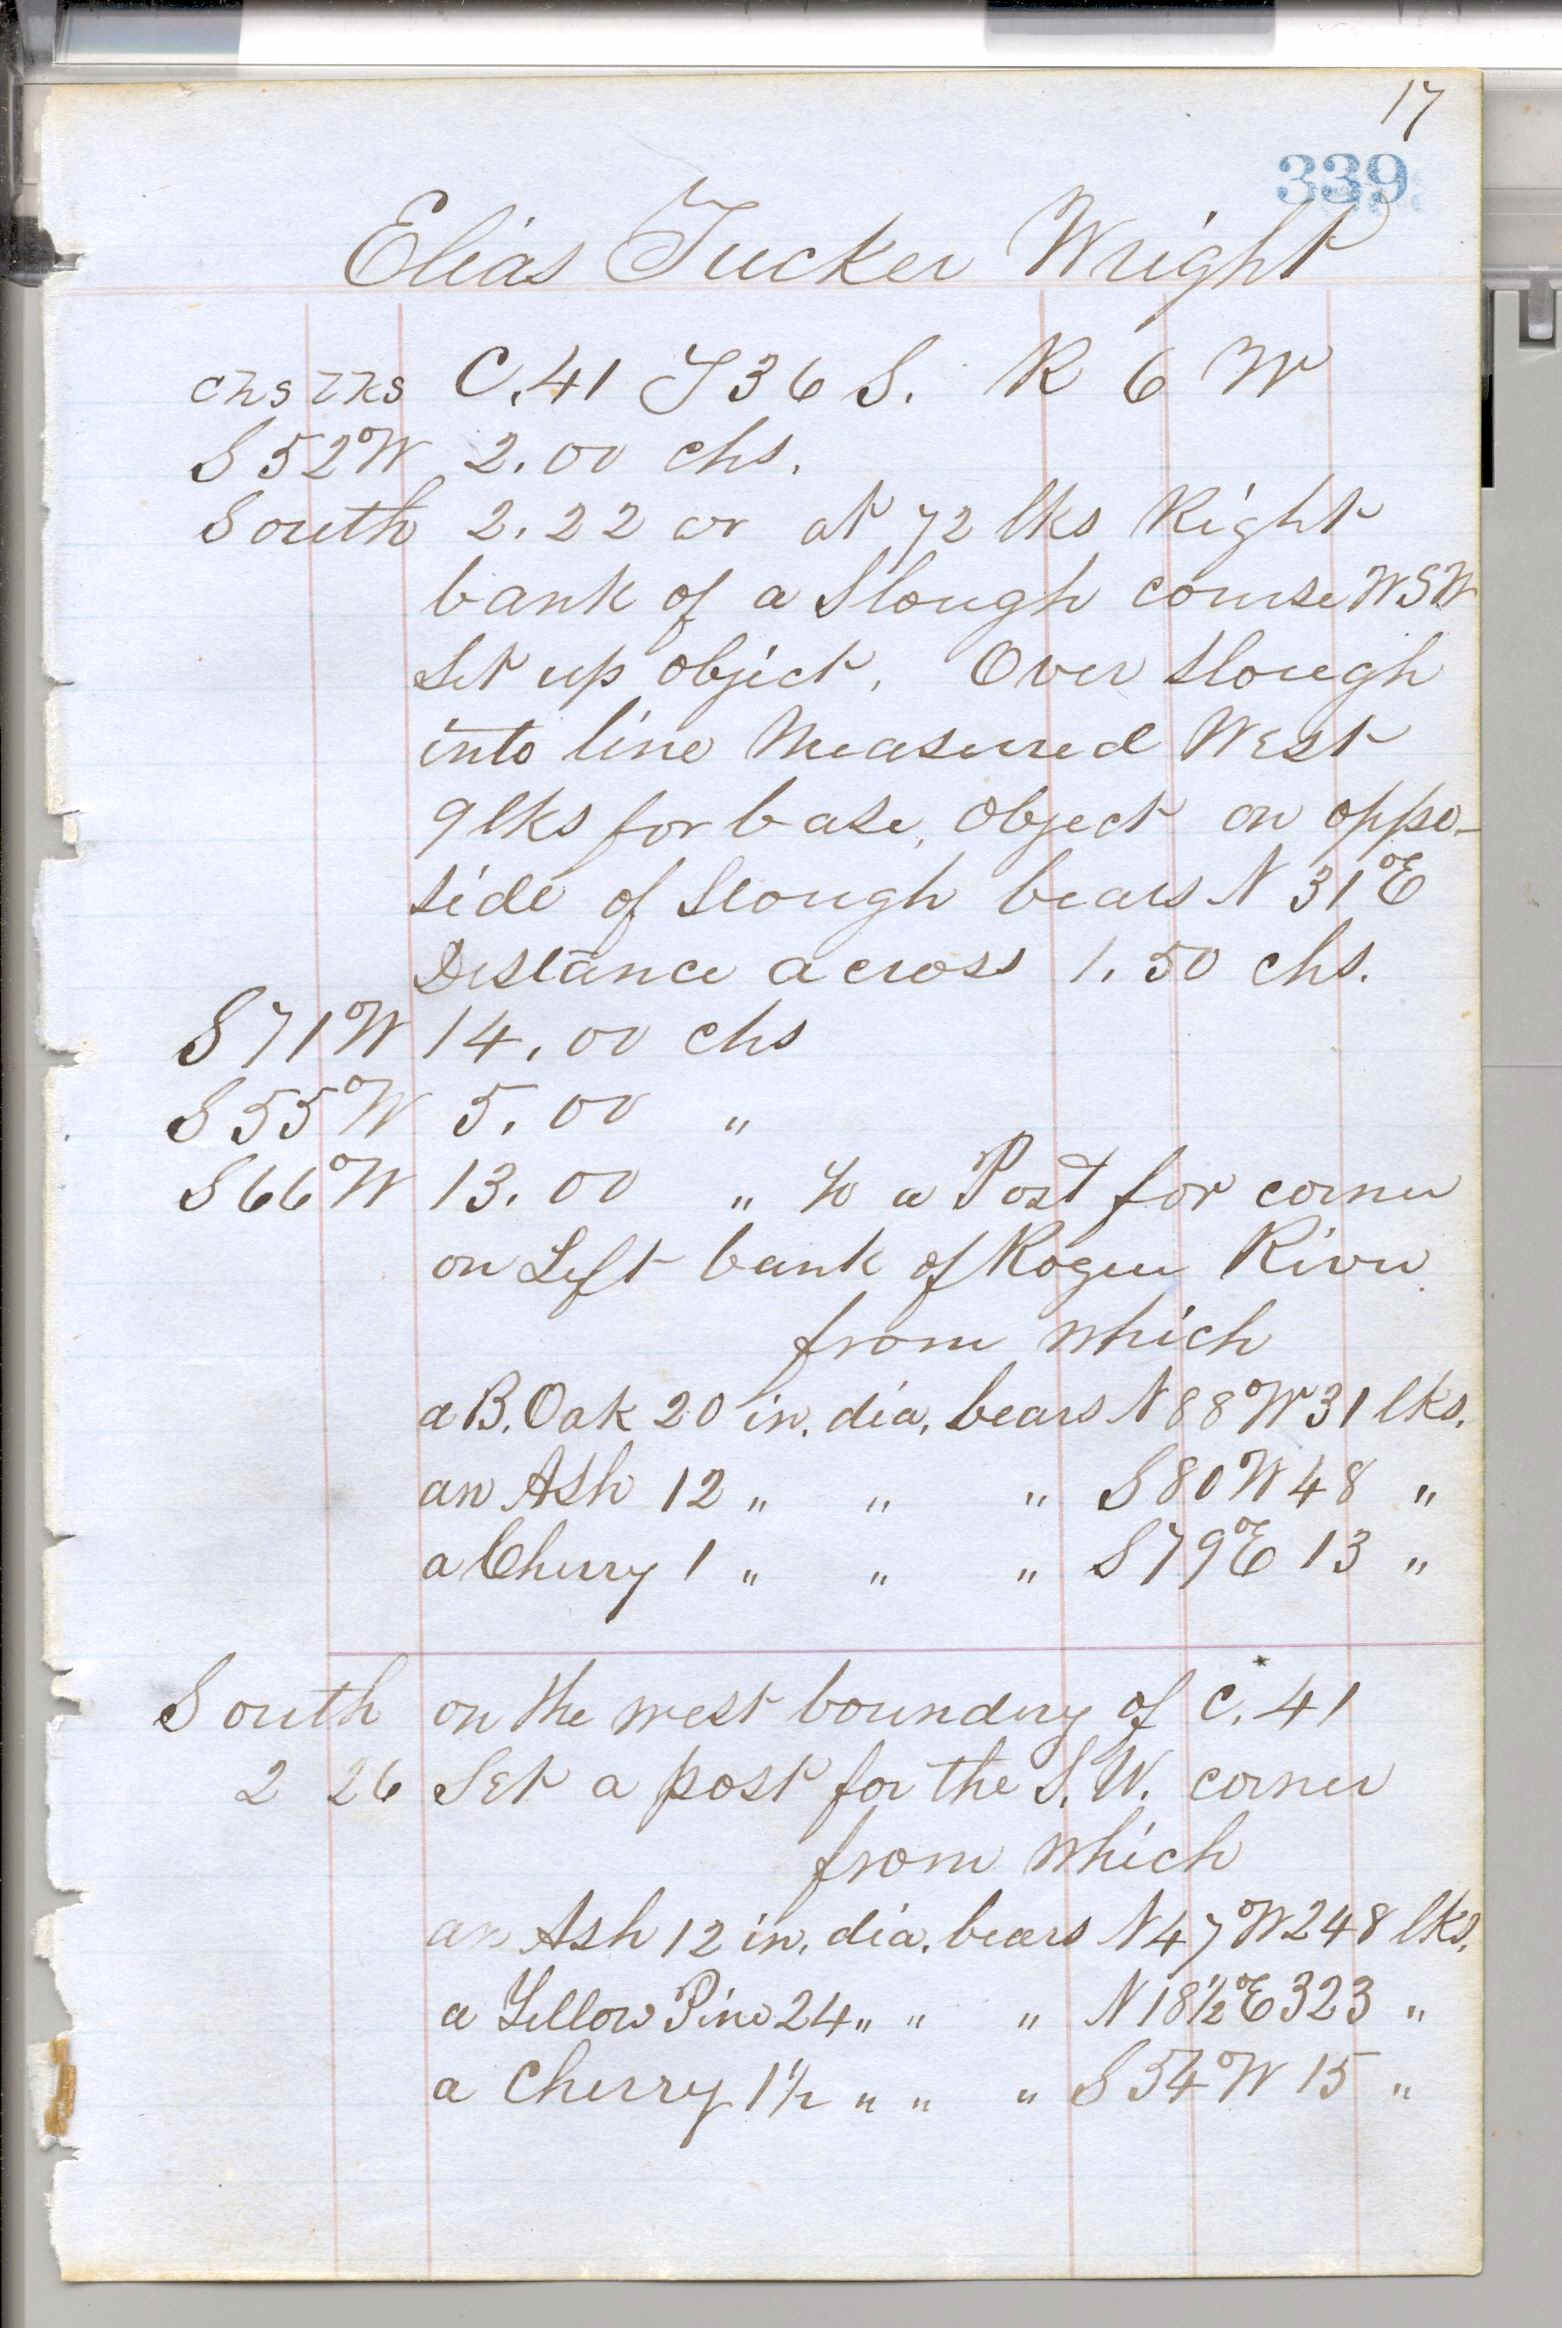 17
339
Elias Tucker Wright
chs lks C. 41 T 36 S. R 6 W
S 52°W 2.00 chs.
South 2.22 or at 72 lks Right
bank of a Slough course WSW
Set up object. Over slough
into line Measured West
9 lks for base, object on oppo-
side of Slough bears N 31°E
Distance across 1.50 chs.
S 71°W 14.00 chs
S 55°W 5.00 "
S 66°W 13.00 " to a Post for corner
on Left bank of Rogue River
from which
a B. Oak 20 in. dia. bears N 88°W 31 lks.
an Ash 12 " " " S 80°W 48 "
a Cherry 1 " " " S 79°E 13 "
South on the west boundry of C. 41
2 26 Set a post for the S.W. corner
from which
an Ash 12 in. dia. bears N 47°W 248 lks.
a Yellow Pine 24 " " " N 18½°E 323 "
a Cherry 1½ " " " S 54°W 15 "